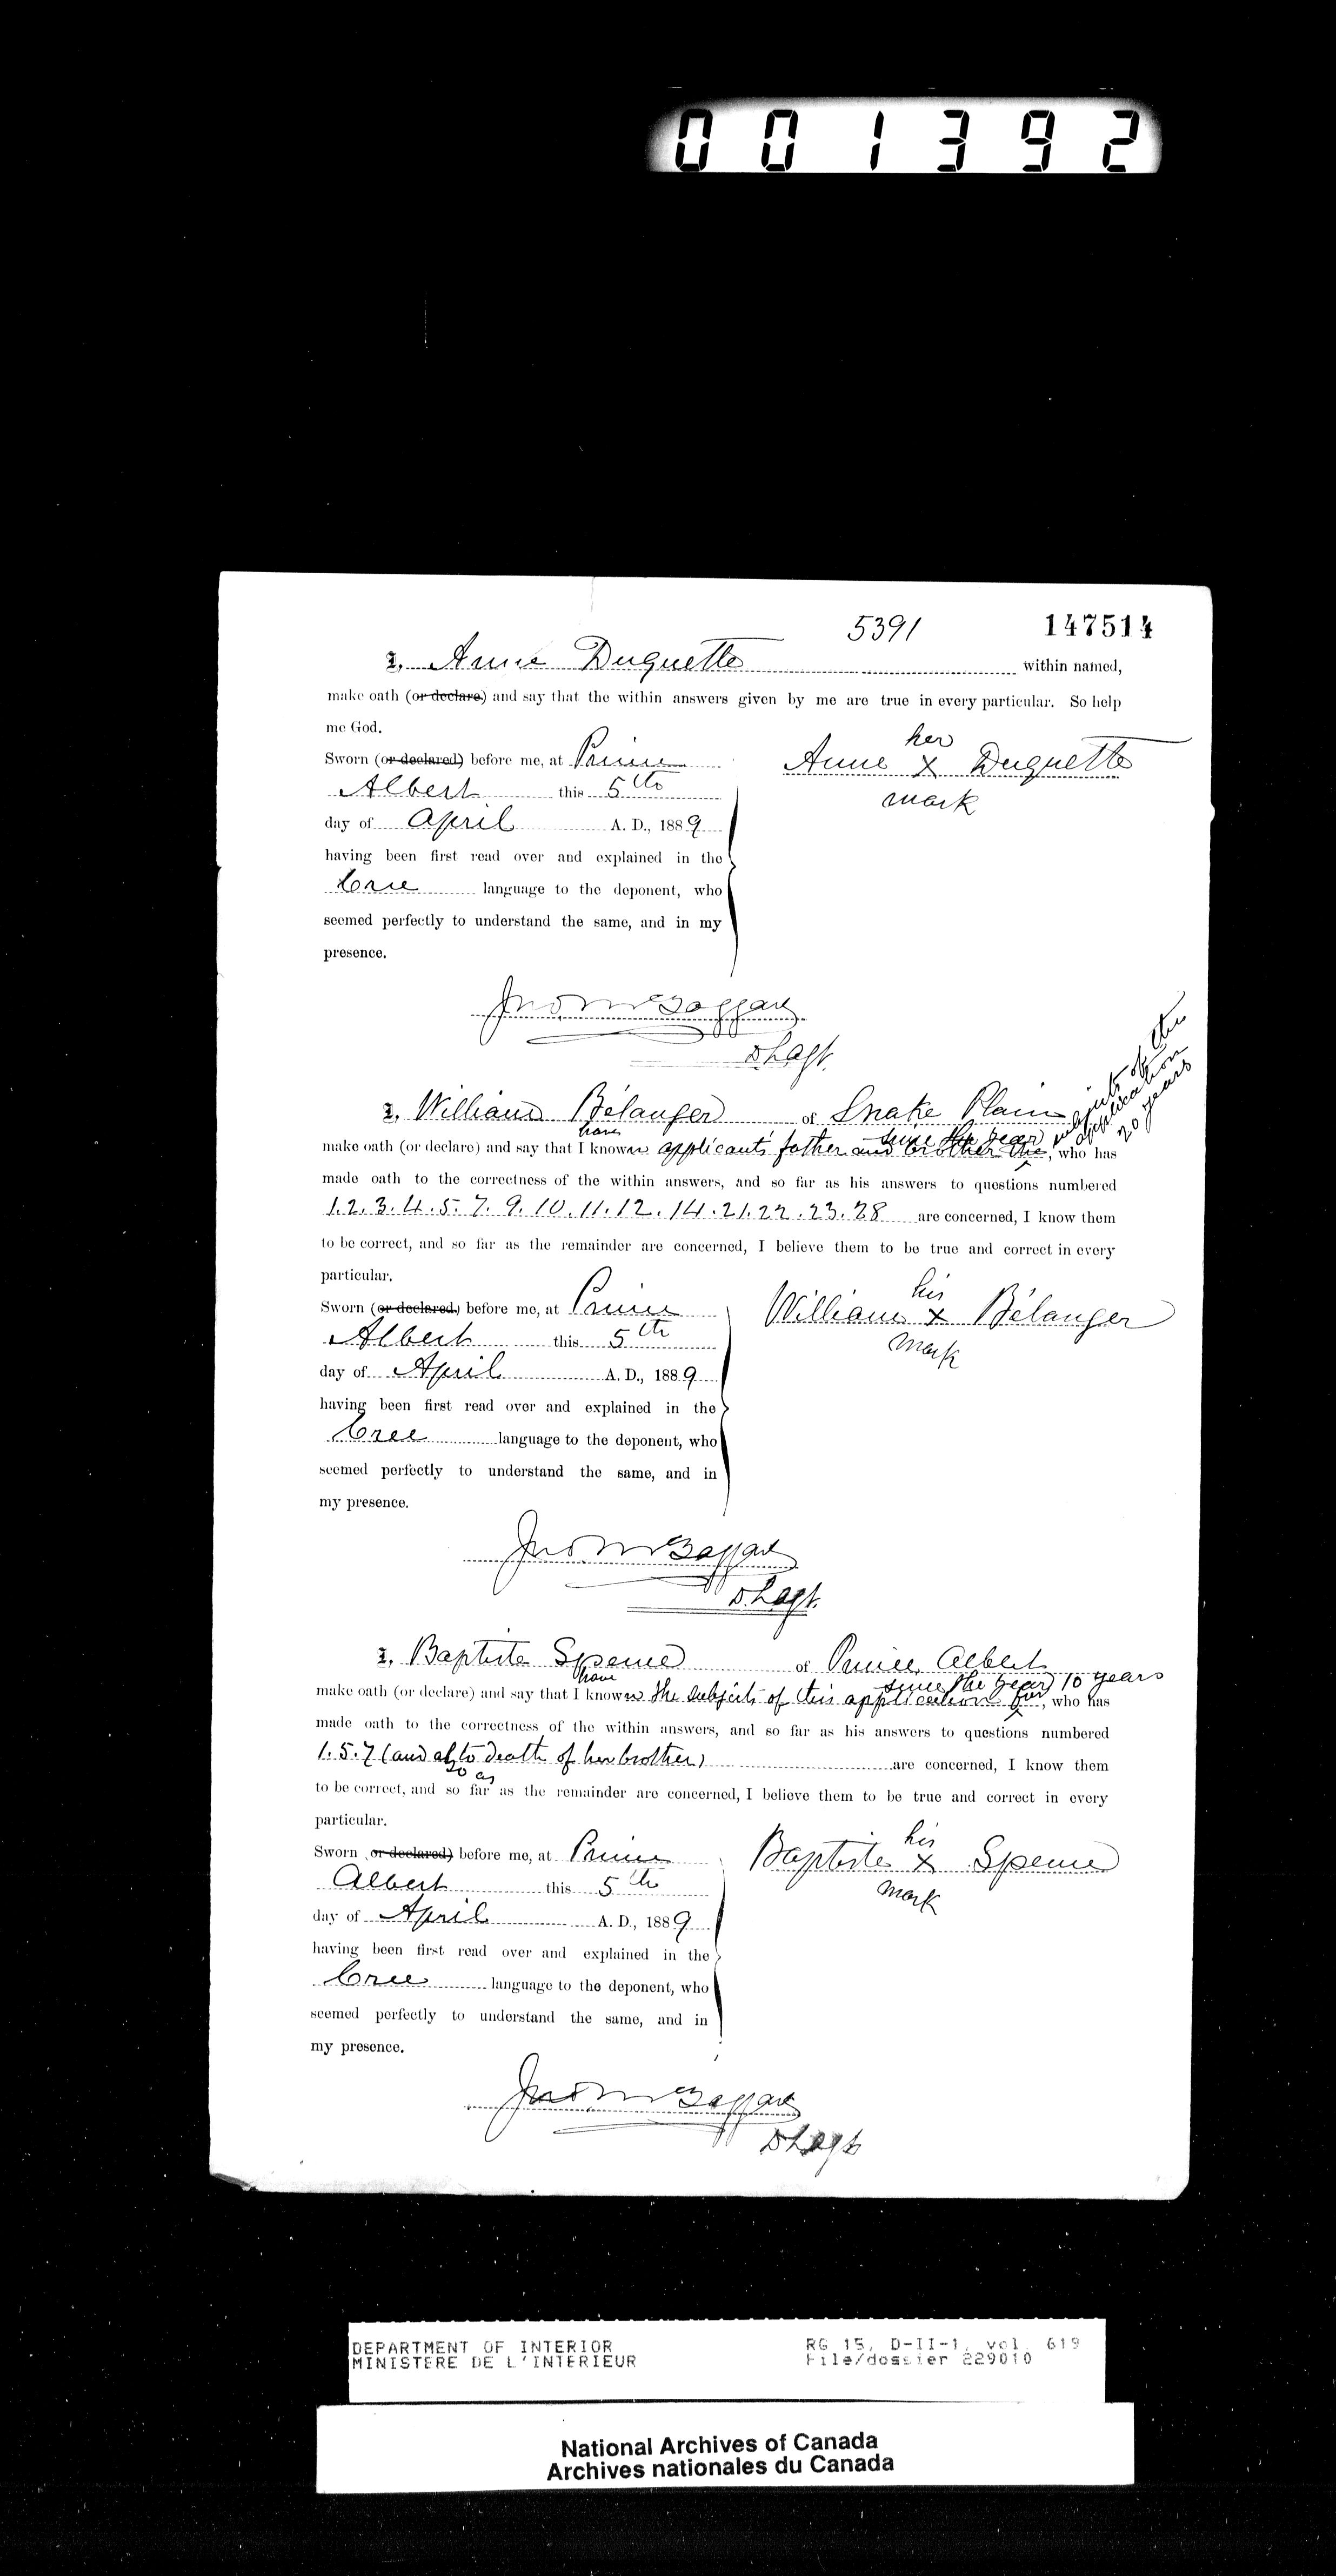 001392
5391 147514
I, Anne Duquette within named,
make oath (or declare) and say that the within answers given by me are true in every particular. So help
me God.
Sworn (or declared) before me, at Prince
Albert this 5th
day of April A. D., 1889
having been first read over and explained in the
Cree language to the deponent, who
seemed perfectly to understand the same, and in my
presence.
her
Anne X Duquette
mark
Jno
D L Agt.
I, William Bélanger of Snake Plain
have since the year subjects of this application 20 years
make oath (or declare) and say that I known applicants father and brother the, who has
made oath to the correctness of the within answers, and so far as his answers to questions numbered
1.2.3.4.5.7.9.10.11.12.14.21.22.23.28 are concerned, I know them
to be correct, and so far as the remainder are concerned, I believe them to be true and correct in every
particular.
Sworn (or declared) before me, at Prince
Albert this 5th
day of April A. D., 1889
having been first read over and explained in the
Cree language to the deponent, who
seemed perfectly to understand the same, and in
my presence.
his
William X Bélanger
mark
Jno
D.L. Agt.
I, Baptiste Spence of Prince Albert
have since the year 10 years
make oath (or declare) and say that I known the subjects of this application for, who has
made oath to the correctness of the within answers, and so far as his answers to questions numbered
1.5.7 (and as to death of her brother) are concerned, I know them
so as
to be correct, and so far as the remainder are concerned, I believe them to be true and correct in every
particular.
Sworn (or declared) before me, at Prince
Albert this 5th
day of April A. D., 1889
having been first read over and explained in the
Cree language to the deponent, who
seemed perfectly to understand the same, and in
my presence.
his
Baptiste X Spence
mark
Jno
D L Agt
DEPARTMENT OF INTERIOR RG 15, D-II-1, vol. 619
MINISTERE DE L'INTERIEUR File/dossier 229010
National Archives of Canada
Archives nationales du Canada